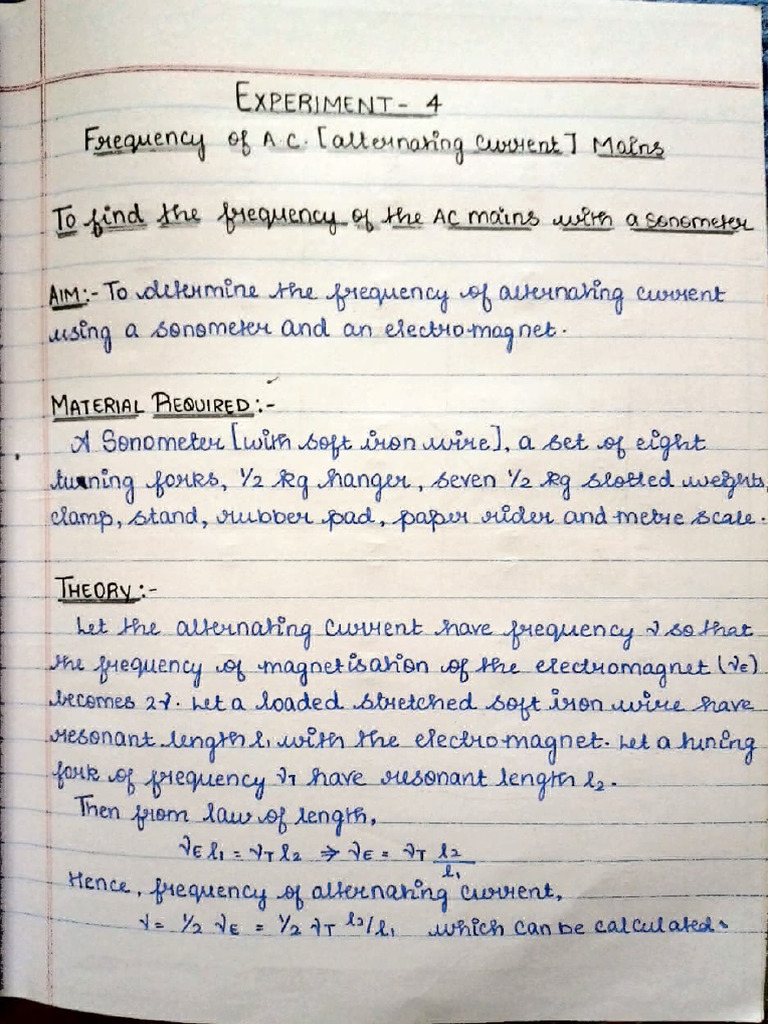 EXPERIMENT - 4
Frequency of A.C. [alternating current] Mains
To find the frequency of the AC mains with a sonometer
AIM:- To determine the frequency of alternating current
using a sonometer and an electro-magnet.
MATERIAL REQUIRED:-
A Sonometer [with soft iron wire], a set of eight
tunning forks, 1/2 kg hanger, seven 1/2 kg slotted weights,
clamp, stand, rubber pad, paper rider and metre scale.
THEORY:-
Let the alternating current have frequency ν so that
the frequency of magnetisation of the electromagnet (νE)
becomes 2ν. Let a loaded stretched soft iron wire have
resonant length l1 with the electro-magnet. Let a tuning
fork of frequency νT have resonant length l2.
Then from law of length,
νE l1 = νT l2 ⇒ νE = νT l2/l1
Hence, frequency of alternating current,
ν = 1/2 νE = 1/2 νT l2/l1 which can be calculated.